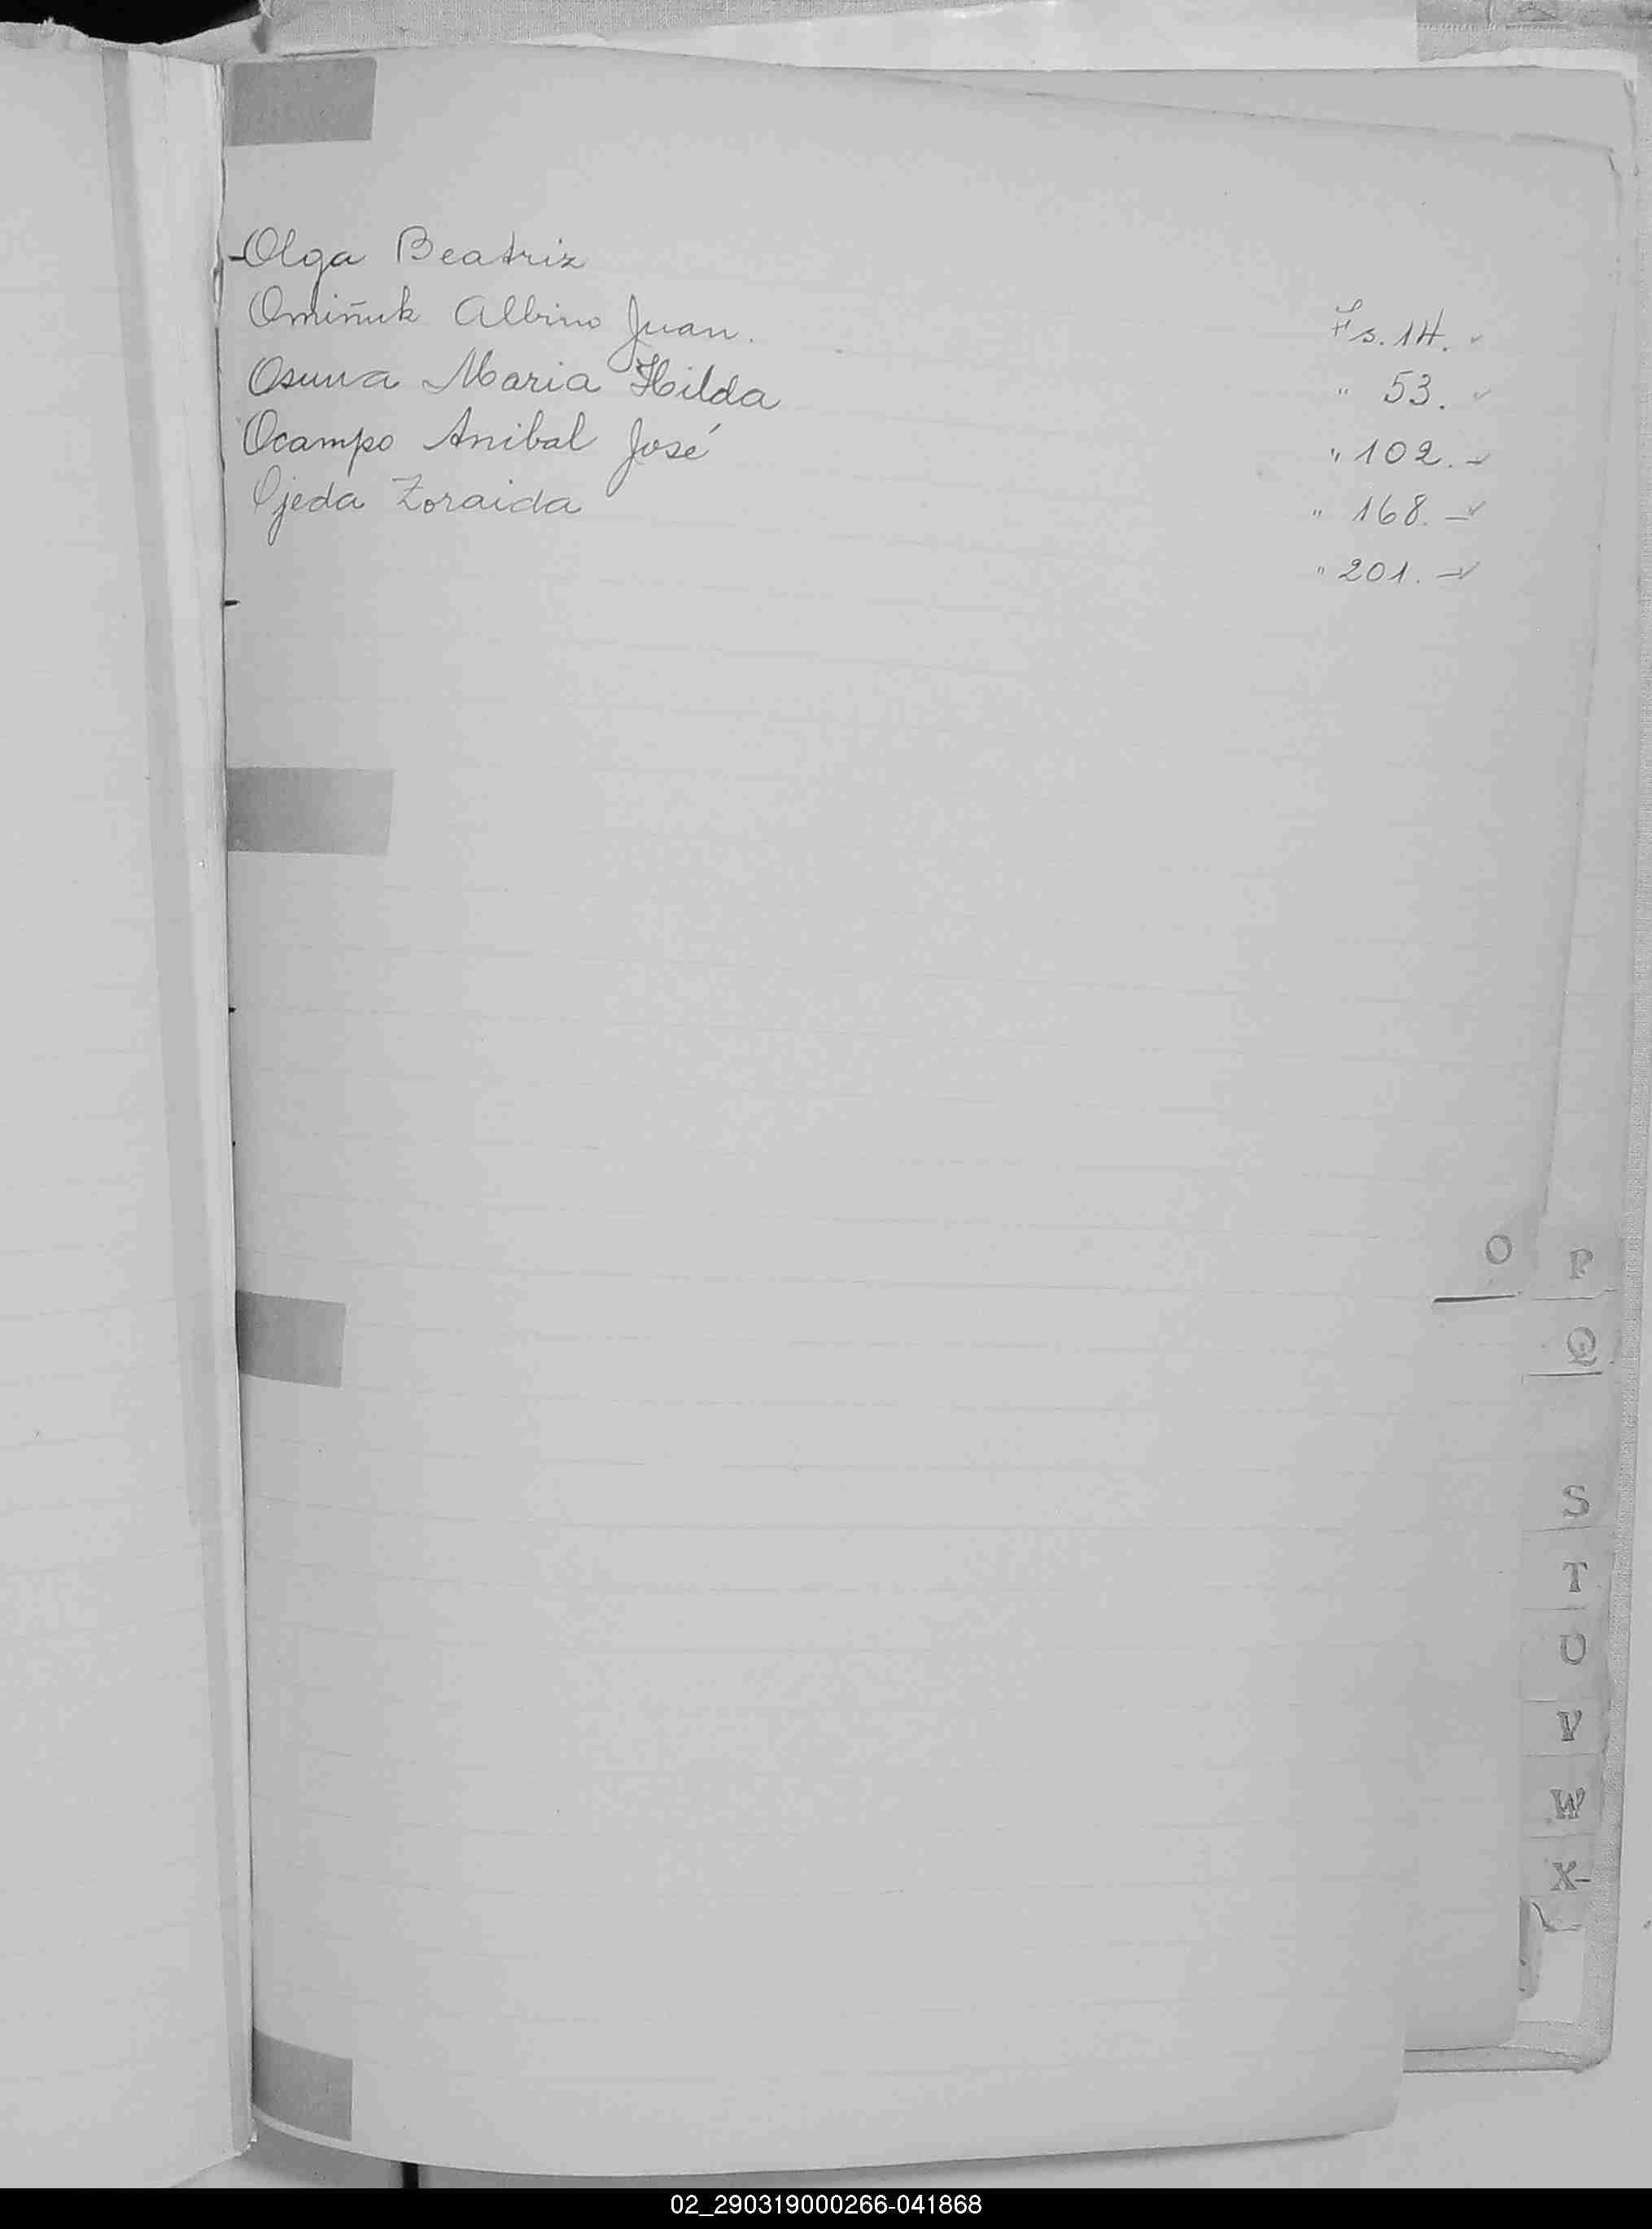 Olga Beatriz Fs. 14.
Omiñuk Albino Juan. " 53.
Osuna Maria Hilda " 102.
Ocampo Anibal José " 168.
Ojeda Zoraida " 201.
O
P
Q
S
T
U
V
W
X-
02_290319000266-041868